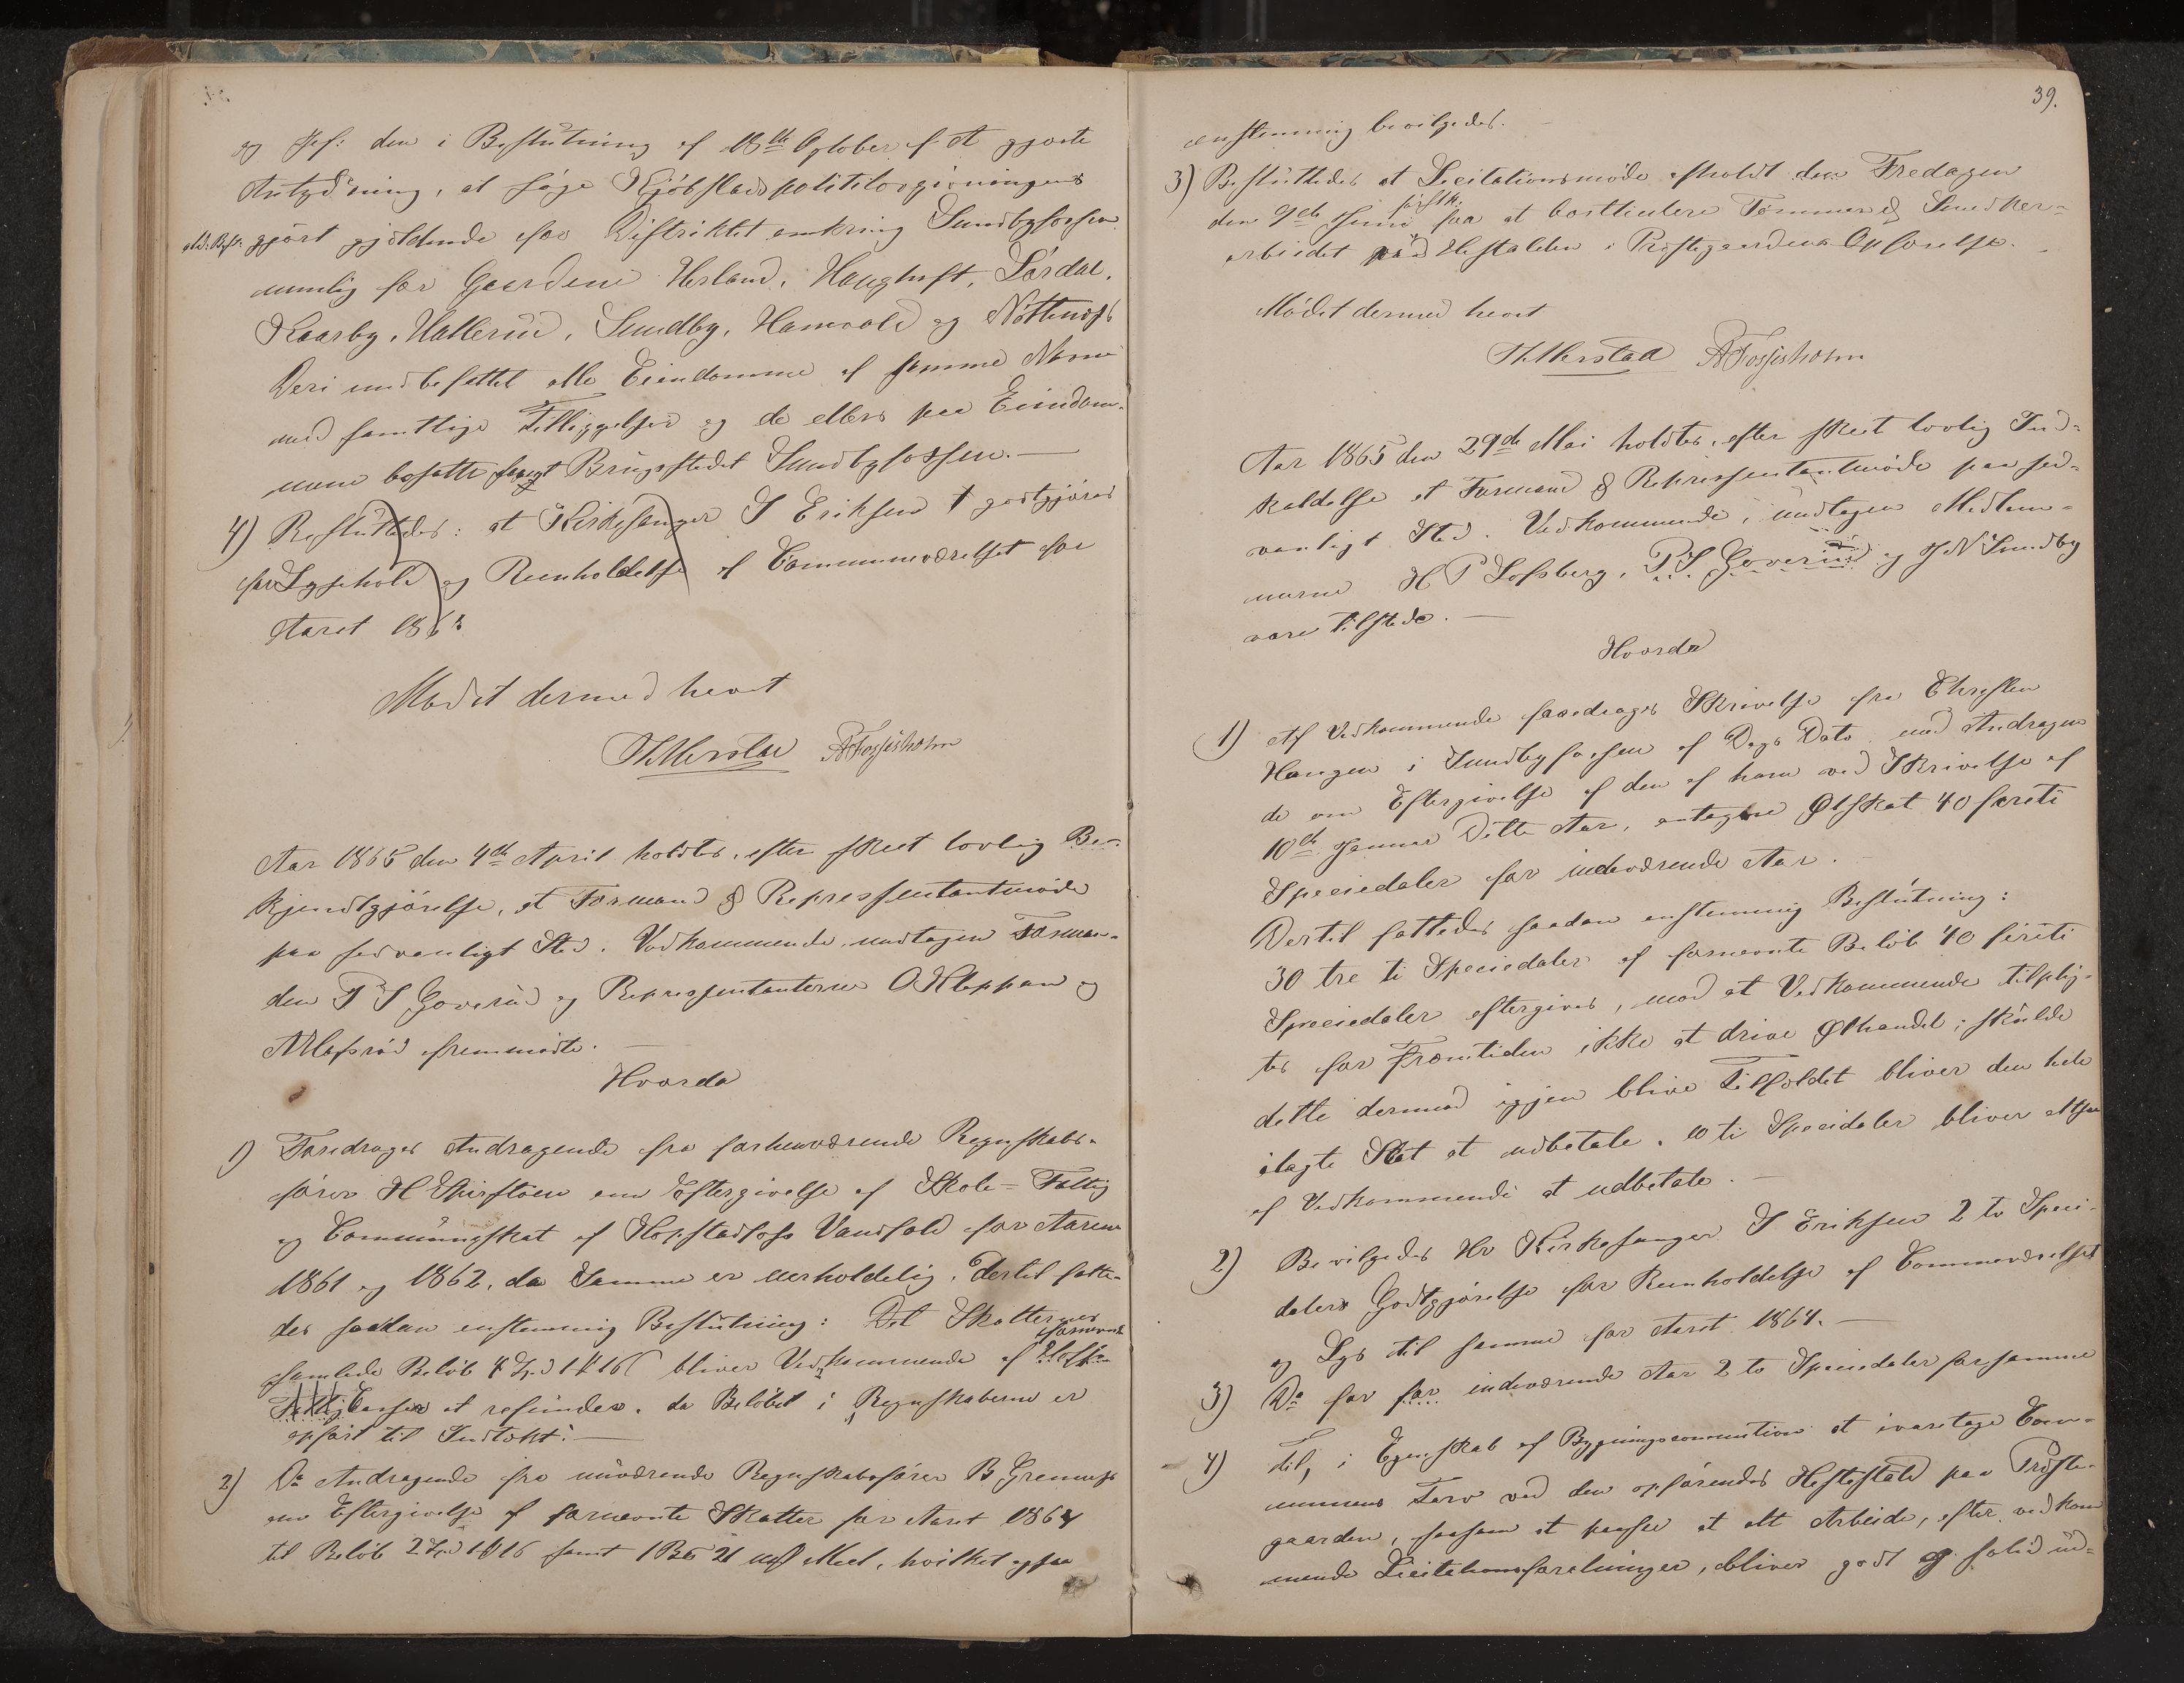 og Ref: den i Beslutning af 18de October f. A gjorte
Antydning, at søge Kjøbstadspolitilovgivningens
gjørt gjældende for Distriktet omkring Sundbyfossen
nemlig for Gaardene Herland, Haughuft, Lørdal,
Kaarby, Hallerud, Sundby, Hamvold og
Deri indbefattet alle Eiendomme af samme Navn
med samtlige Tilliggelser og de ellers paa Eiendom-
mene bosatte samt Brugsstedet Sundbyfossen. —
4) Besluttedes: at Kirkesanger S Eriksen godtgjøres
for Lysehold og Reenholdelse af Communeværelset for
Aaret 1863
Mødet dermed hævet
Th Ulverstad A Fossesholm
Aar 1865 den 4de April holdtes, efter skeet lovlig Be-
kjendtgjørelse, et Formand & Repræsentantmøde
paa sedvanligt Sted. Vedkommende undtagen Forman-
den P S Goverud og Repræsentanterne O Kleppan og
fremmødte. —
Hvorda
1) Foredroges Andragende fra forhenværende Regnskabs-
fører H om Eftergivelse af Skole- Fattig
og Communeskat af Hopstadfoss Vandfald for Aarene
1861 og 1862, da Samme er uerholdelig. Dertil fatte-
des saadan enstemmig Beslutning: Det Skatternes
fornevnte
samlede Beløb 4 Spd 1 # 16 bliver Vedkommende af
at refundere, da Beløbet i Regnskaberne er
opført til Indtægt. —
2) Do Andragende fra nuværende Regnskabsfører B
om Eftergivelse af fornevnte Skatter for Aaret 1864
til Beløb 2 Spd 1 # 16 samt 21 Meel, hvilket ogsaa
39.
enstemmig bevilgedes. —
3) Besluttedes at Licitationsmøde afholdt den Fredagen
førstk.
den 9de Juni for at bortlicitere Tømmer & Snedker-
arbeidet paa Hestalden i Præstegaardens Opførelse. —
Mødet dermed hævet
Th Ulverstad A Fossesholm
Aar 1865 den 29de Mai holdtes, efter skeet lovlig Ind-
kaldelse et Formand & Repræsentantmøde paa sed-
vanligt Sted. Vedkommende, undtagen Medlem-
merne H P Lofsberg, P S Goverud og J N Sundby
vare tilstede. —
Hvorda
1) Af Vedkommende foredroges Skrivelse fra Christen
Haugen i Sundbyfossen af Dags Dato med Andragen
de om Eftergivelse af den af ham ved Skrivelse af
10de Januar dette Aar, antagne Ølskat 40 føreti
Speciedaler for indeværende Aar. —
Dertil fattedes saadan enstemmig Beslutning:
30 tre ti Speciedaler af fornevnte Beløb 40 føreti
Speciedaler eftergives, mod at Vedkommende tilplig-
tes for Fremtiden ikke at drive Ølhandel; skulde
dette dermed igjen blive Tilfældet bliver den hele
ilagte Skat at udbetale. 10 ti Speciedaler bliver altsaa
af Vedkommende at udbetale. —
2) Bevilgedes Hr Kirkesanger S Eriksen 2 to Speci-
dalers Godtgjørelse for Reenholdelse af Communeværelset
og Lys til samme for Aaret 1864. —
3) Do for for indeværende Aar 2 to Speciedaler for samme
4) Til, i Egenskab af Bygningscommition at ivaretage Com-
munens Tarv ved den opførendes Hestestald paa Præste-
gaarden, saasom at paasee at alt Arbeide, efter vedkom
mende Licitationsforetninger, bliver godt og solid ud-